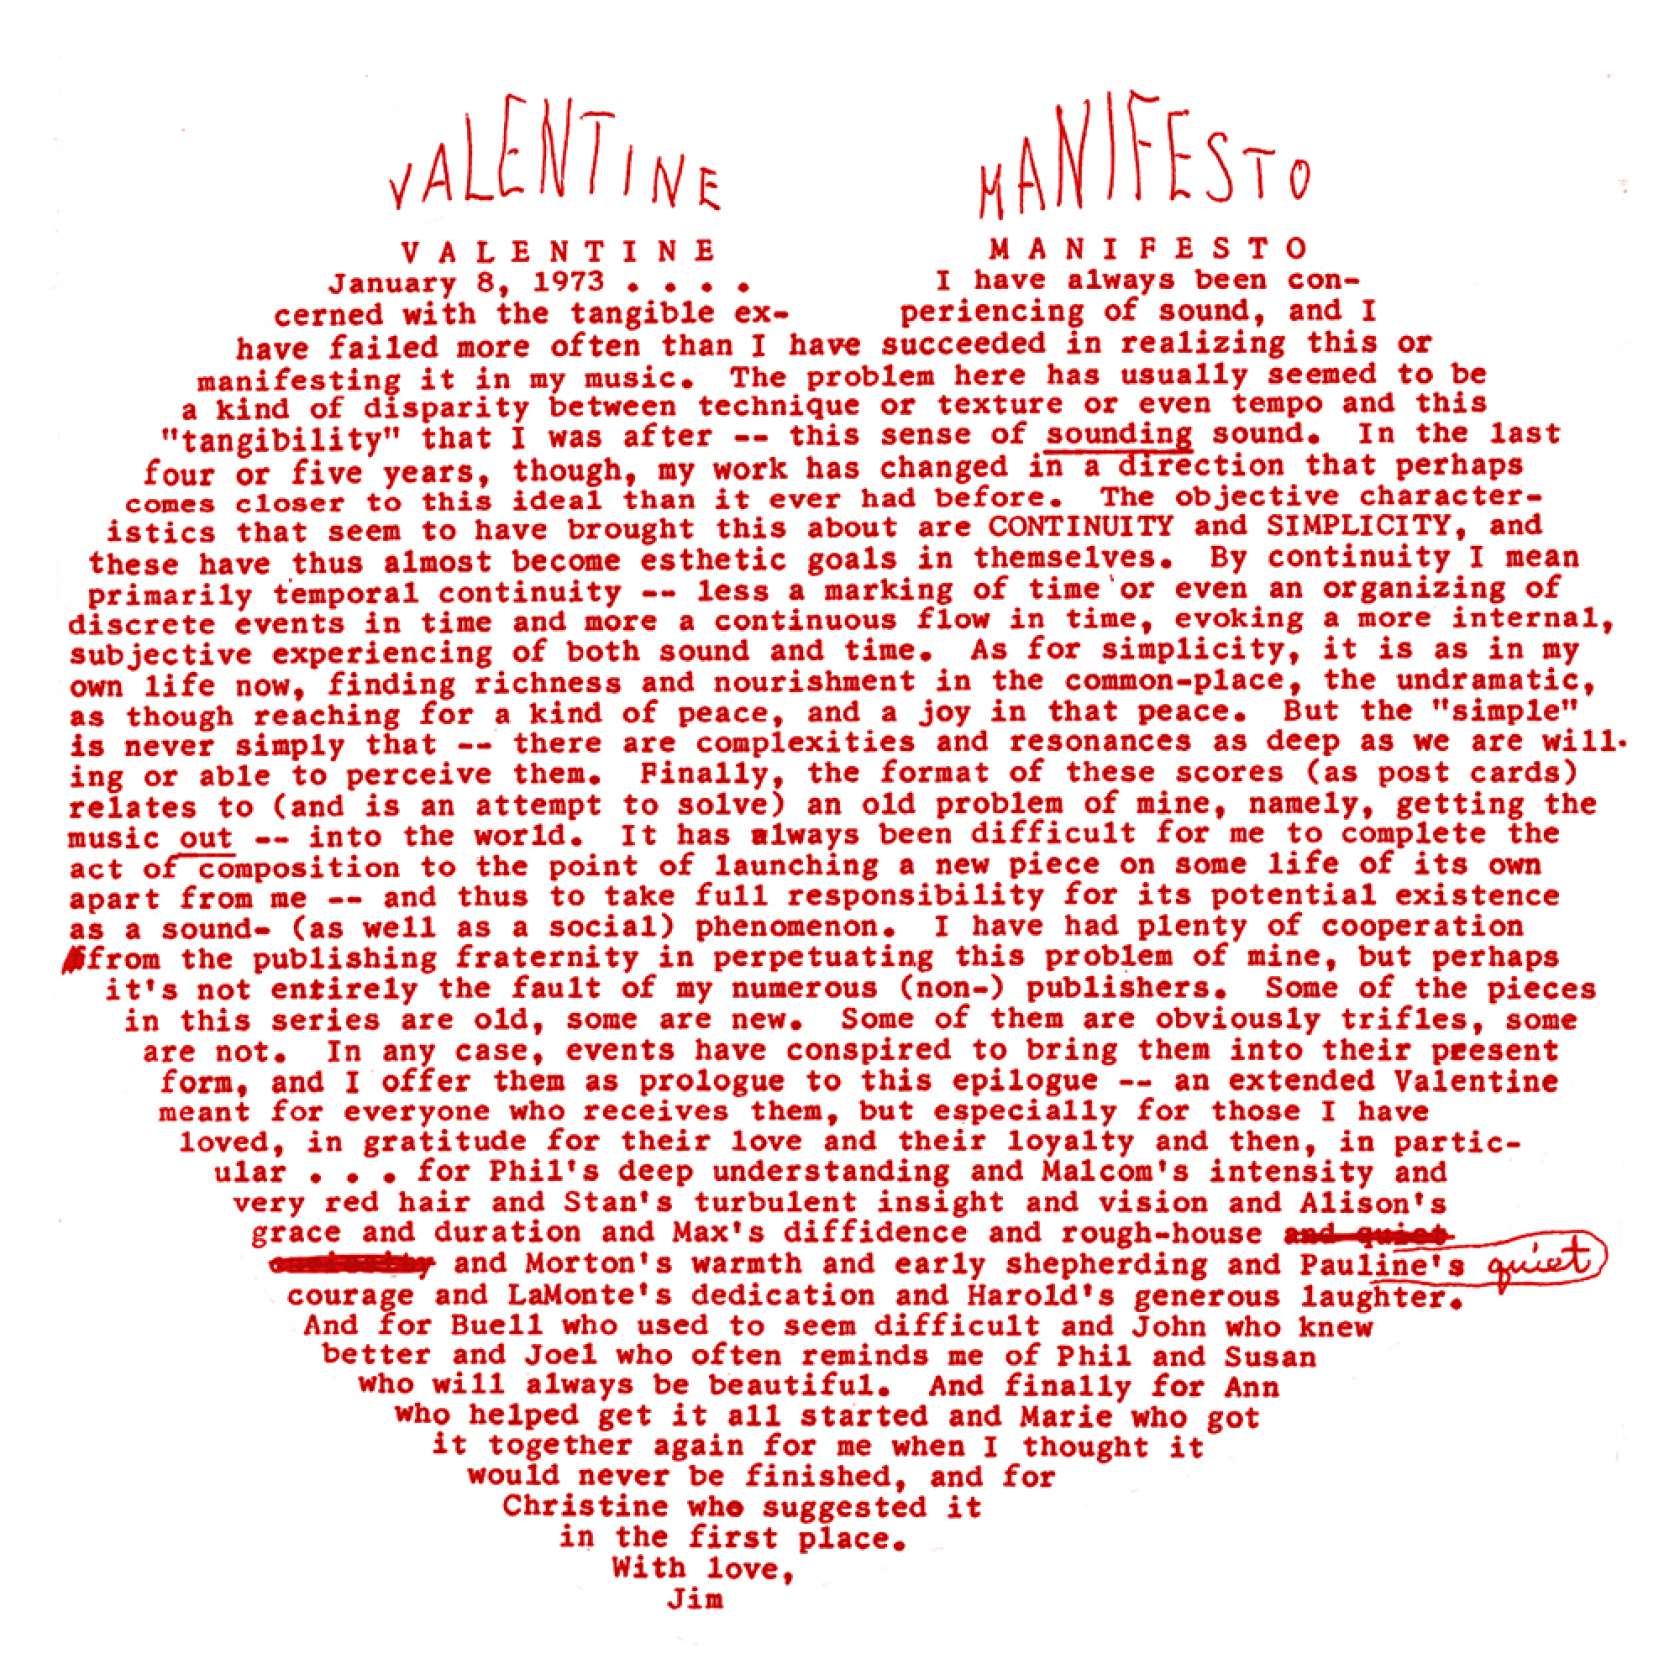 VALENTINE MANIFESTO
V A L E N T I N E M A N I F E S T O
January 8, 1973 . . . . I have always been con-
cerned with the tangible ex- periencing of sound, and I
have failed more often than I have succeeded in realizing this or
manifesting it in my music. The problem here has usually seemed to be
a kind of disparity between technique or texture or even tempo and this
"tangibility" that I was after -- this sense of sounding sound. In the last
four or five years, though, my work has changed in a direction that perhaps
comes closer to this ideal than it ever had before. The objective character-
istics that seem to have brought this about are CONTINUITY and SIMPLICITY, and
these have thus almost become esthetic goals in themselves. By continuity I mean
primarily temporal continuity -- less a marking of time or even an organizing of
discrete events in time and more a continuous flow in time, evoking a more internal,
subjective experiencing of both sound and time. As for simplicity, it is as in my
own life now, finding richness and nourishment in the common-place, the undramatic,
as though reaching for a kind of peace, and a joy in that peace. But the "simple"
is never simply that -- there are complexities and resonances as deep as we are will-
ing or able to perceive them. Finally, the format of these scores (as post cards)
relates to (and is an attempt to solve) an old problem of mine, namely, getting the
music out -- into the world. It has always been difficult for me to complete the
act of composition to the point of launching a new piece on some life of its own
apart from me -- and thus to take full responsibility for its potential existence
as a sound- (as well as a social) phenomenon. I have had plenty of cooperation
from the publishing fraternity in perpetuating this problem of mine, but perhaps
it's not entirely the fault of my numerous (non-) publishers. Some of the pieces
in this series are old, some are new. Some of them are obviously trifles, some
are not. In any case, events have conspired to bring them into their present
form, and I offer them as prologue to this epilogue -- an extended Valentine
meant for everyone who receives them, but especially for those I have
loved, in gratitude for their love and their loyalty and then, in partic-
ular . . . for Phil's deep understanding and Malcom's intensity and
very red hair and Stan's turbulent insight and vision and Alison's
grace and duration and Max's diffidence and rough-house and quiet
and Morton's warmth and early shepherding and Pauline's quiet
courage and LaMonte's dedication and Harold's generous laughter.
And for Buell who used to seem difficult and John who knew
better and Joel who often reminds me of Phil and Susan
who will always be beautiful. And finally for Ann
who helped get it all started and Marie who got
it together again for me when I thought it
would never be finished, and for
Christine who suggested it
in the first place.
With love,
Jim